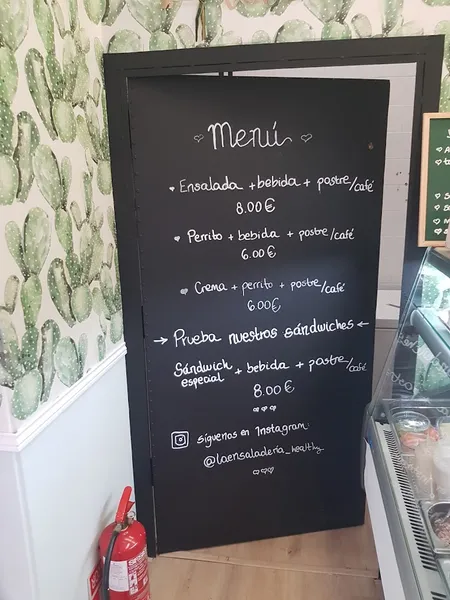 Menú
Ensalada + bebida + postre/café
8.00€
Perrito + bebida + postre/café
6.00€
Crema + perrito + postre/café
6.00€
→ Prueba nuestros sándwiches ←
Sándwich especial + bebida + postre/café
8.00€
síguenos en Instagram
@laensaladería_healthy